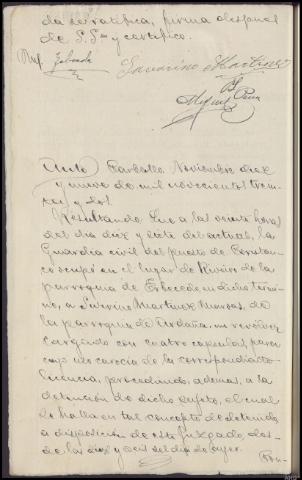 da se ratifica, firma despues
de S.Sª y certifico.
Savarino Martinez
Miguel
Auto Carballo Noviembre diez
y nueve de mil novecientos trein-
ta y dos.
Resultando: Que a las veinte horas
del dia diez y siete del actual, la
Guardia civil del puesto de
ocupó en el lugar de de la
parroquia de en dicho termi-
no, a Martinez de
la parroquia de Ardaña, un revólver
cargado con cuatro capsulas, para
cuyo uso carecia de la correspondiente
licencia, procediendo, ademas, a la
detencion de dicho sujeto, el cual
se halla en tal concepto de detenido
a disposicion de este Juzgado des-
de las diez y seis del dia de ayer.